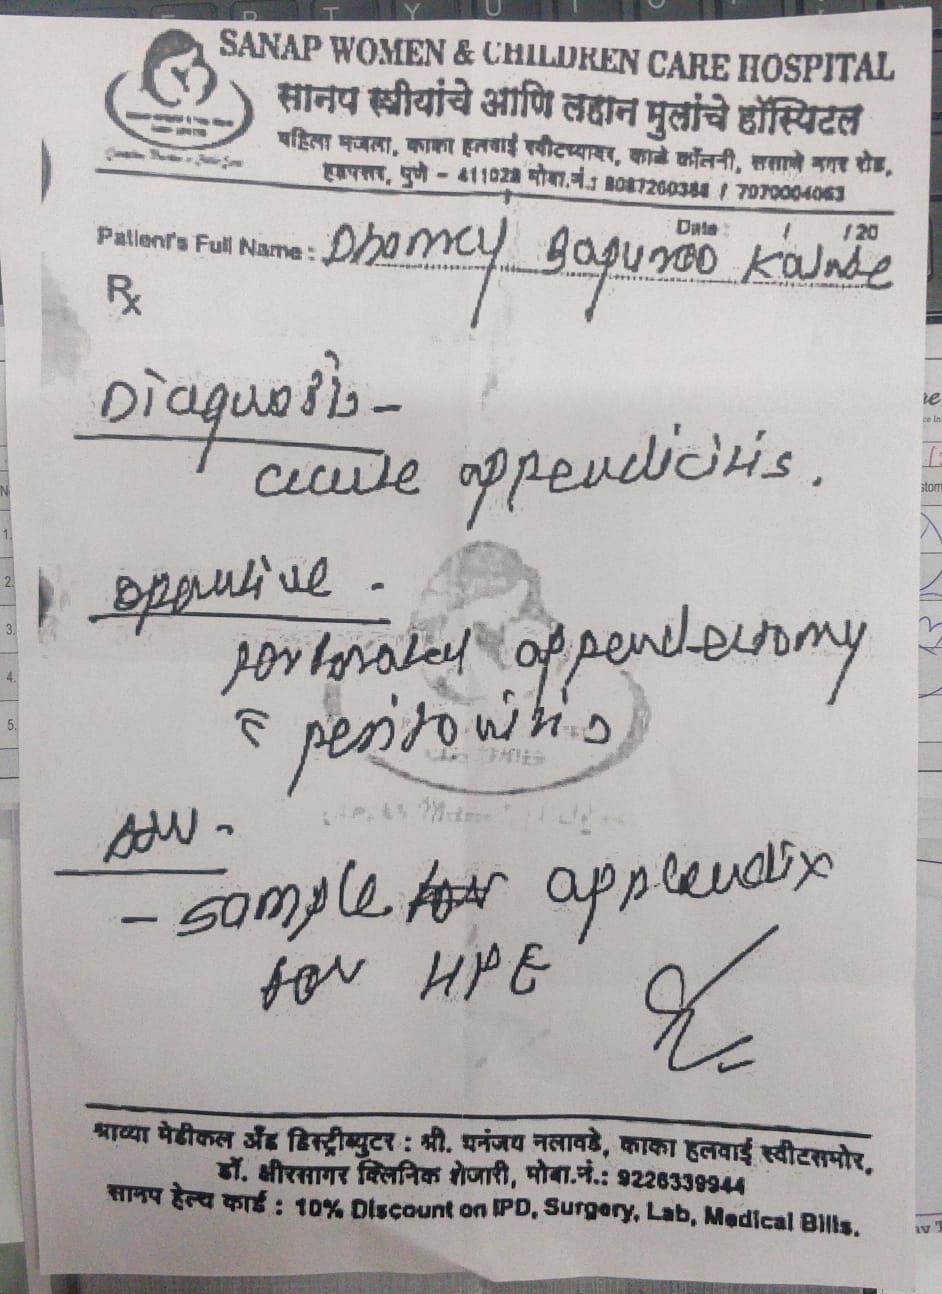 SANAP WOMEN & CHILDREN CARE HOSPITAL
सानप स्त्रीयांचे आणि लहान मुलांचे हॉस्पिटल
पहिला मजला, काका हलवाई स्वीटच्यावर, काळे कॉलनी, ससाणे नगर रोड,
हडपसर, पुणे - 411028 मोबा.नं.: 8087260388 / 7070004063
Date : / /20
Patient's Full Name : Bapurao
Rx
Diagnosis -
acute appendicitis.
operative -
perforated appendectomy
c̄ peritonitis
Adv -
- sample for appendix
for HPE
श्राव्या मेडीकल अँड डिस्ट्रीब्युटर : श्री. धनंजय नलावडे, काका हलवाई स्वीटसमोर,
डॉ. क्षीरसागर क्लिनिक शेजारी, मोबा.नं.: 9226339944
सानप हेल्थ कार्ड : 10% Discount on IPD, Surgery, Lab, Medical Bills.